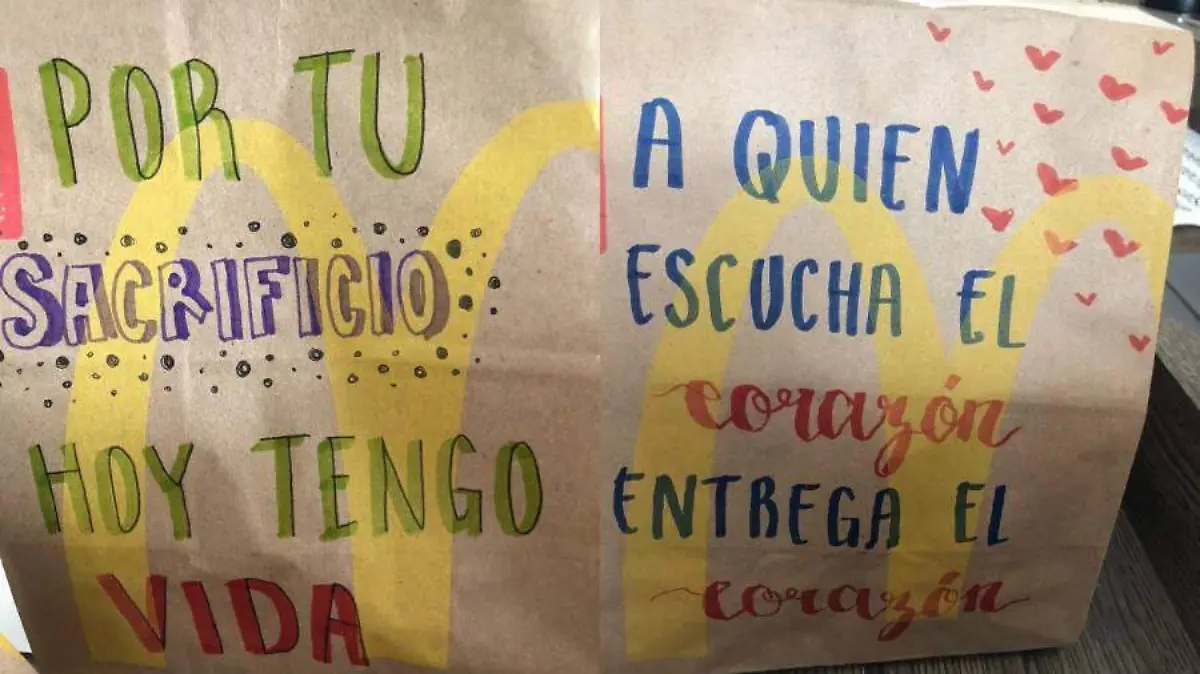 POR TU
SACRIFICIO
HOY TENGO
VIDA
A QUIEN
ESCUCHA EL
corazón
ENTREGA EL
corazón